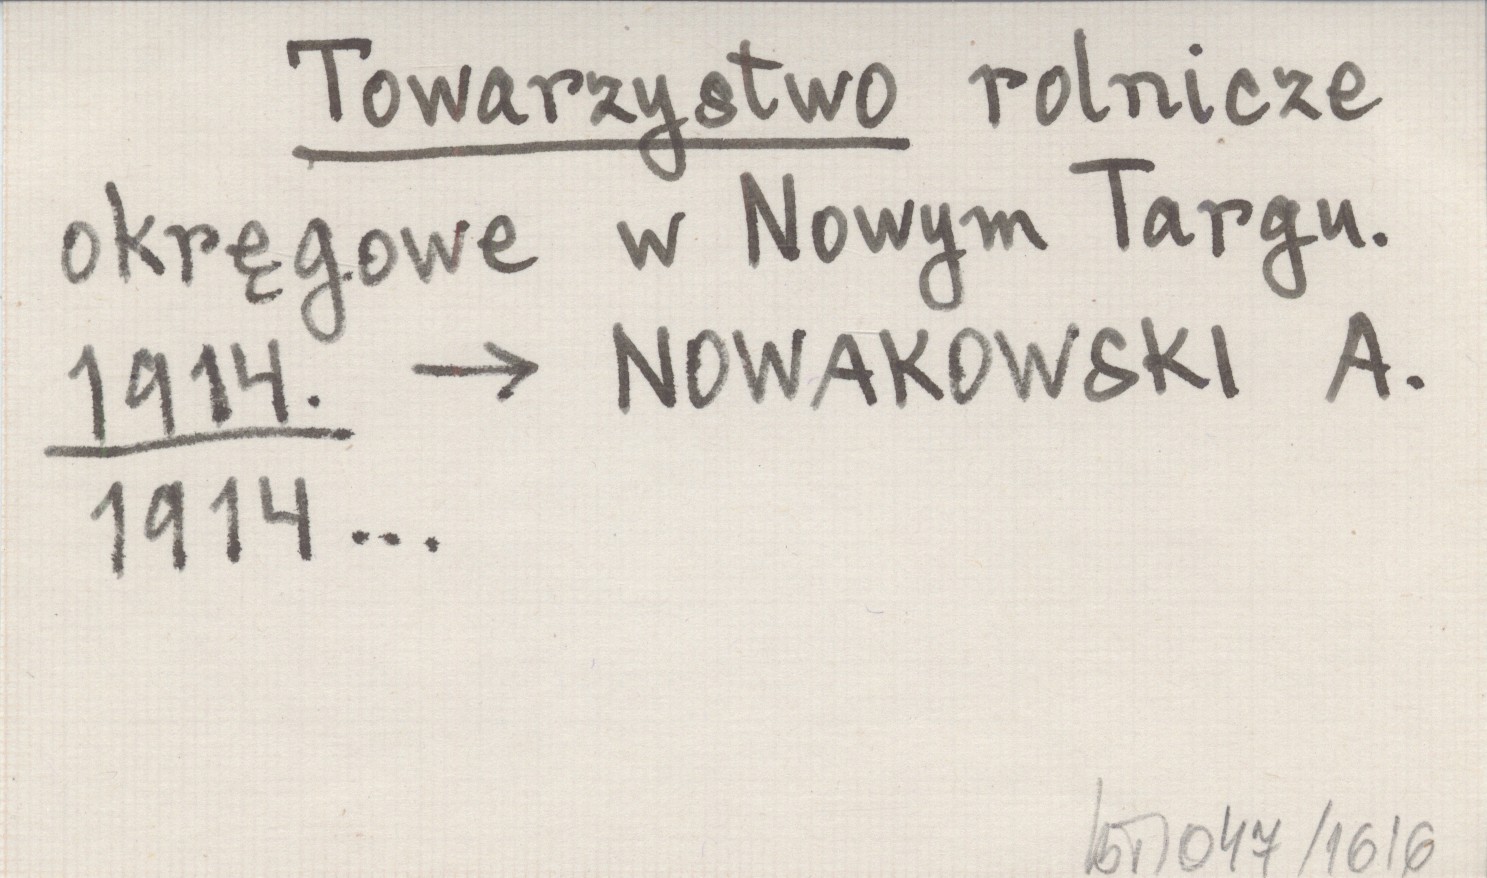 Towarzystwo rolnicze
okręgowe w Nowym Targu.
1914. → NOWAKOWSKI A.
1914...
047/1616